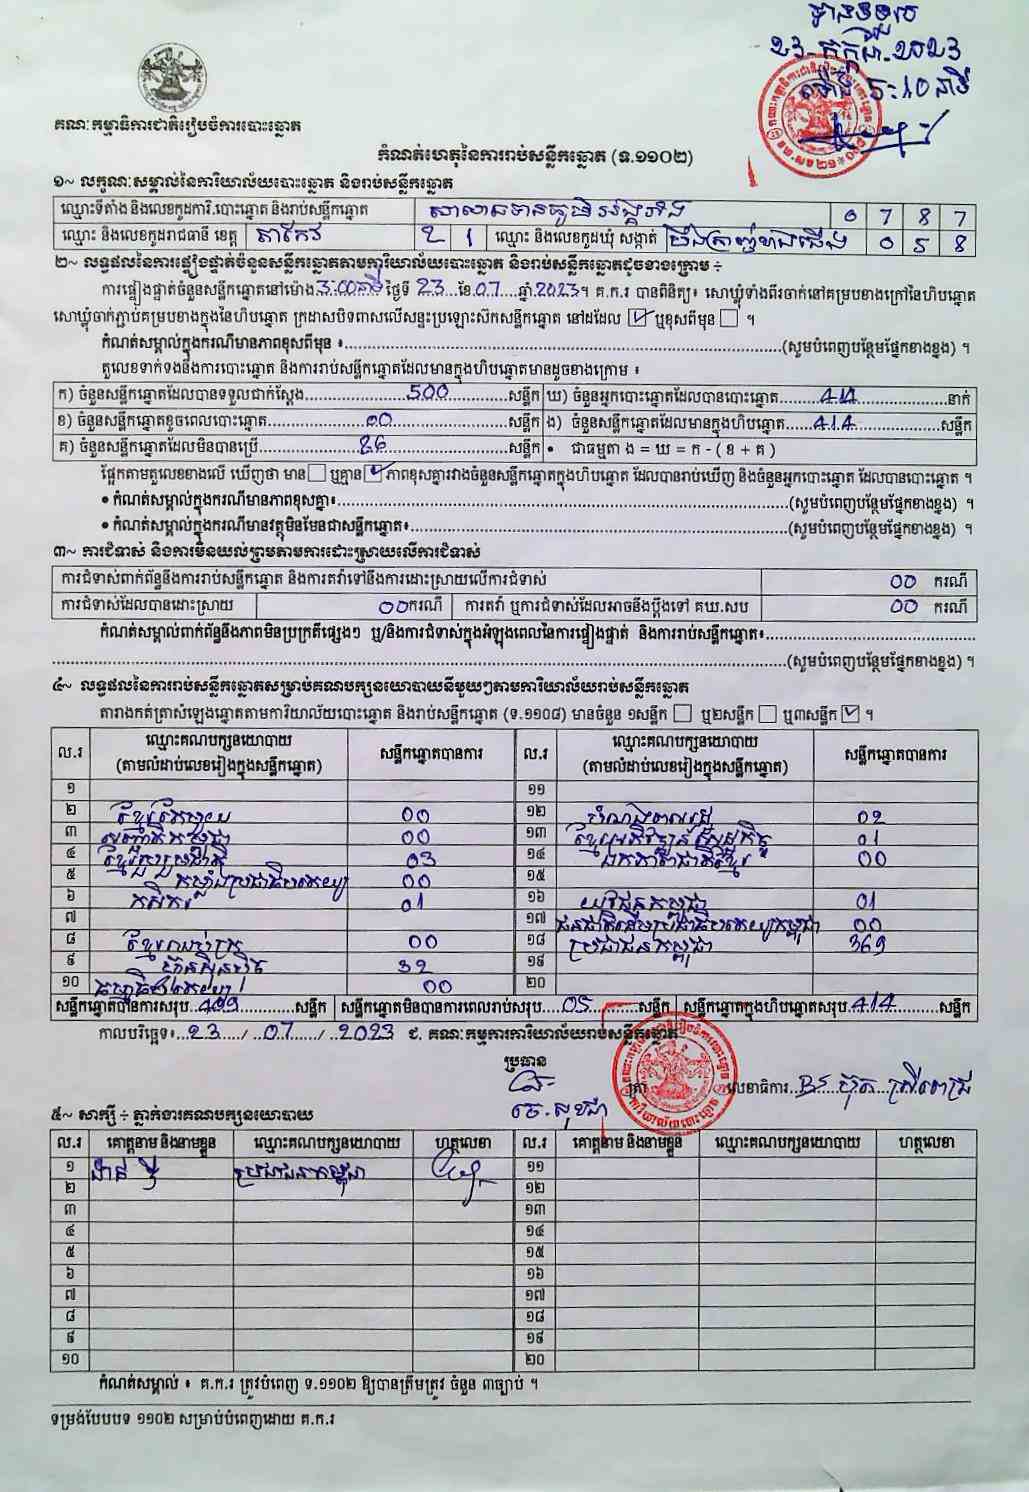 បានទទួល
23-កក្កដា-2023
ម៉ោង 5:10 នាទី
គណៈកម្មាធិការជាតិរៀបចំការបោះឆ្នោត
កំណត់ហេតុនៃការរាប់សន្លឹកឆ្នោត (ទ.១១០២)
១~ លក្ខណៈសម្គាល់នៃការិយាល័យបោះឆ្នោត និងរាប់សន្លឹកឆ្នោត
ឈ្មោះទីតាំង និងលេខកូដការិ.បោះឆ្នោត និងរាប់សន្លឹកឆ្នោត សាលាឆទានភូមិ 0 7 8 7
ឈ្មោះ និងលេខកូដរាជធានី ខេត្ត តាកែវ 2 1 ឈ្មោះ និងលេខកូដឃុំ សង្កាត់ បឹងត្រាញ់ខាងជើង 0 5 8
២~ លទ្ធផលនៃការផ្ទៀងផ្ទាត់ចំនួនសន្លឹកឆ្នោតតាមការិយាល័យបោះឆ្នោត និងរាប់សន្លឹកឆ្នោតដូចខាងក្រោម ÷
ការផ្ទៀងផ្ទាត់ចំនួនសន្លឹកឆ្នោតនៅម៉ោង 3:00នាទី ថ្ងៃទី 23 ខែ 07 ឆ្នាំ 2023។ គ.ក.រ បានពិនិត្យ៖ សោឃ្លុំទាំងពីរចាក់នៅគម្របខាងក្រៅនៃហិបឆ្នោត
សោឃ្លុំចាក់ភ្ជាប់គម្របខាងក្នុងនៃហិបឆ្នោត ក្រដាសបិទពាសលើសន្ទះប្រឡោះស៊កសន្លឹកឆ្នោត នៅដដែល ☑ ឬខុសពីមុន ☐ ។
កំណត់សម្គាល់ក្នុងករណីមានភាពខុសពីមុន ៖ (សូមបំពេញបន្ថែមផ្នែកខាងខ្នង) ។
តួលេខទាក់ទងនឹងការបោះឆ្នោត និងការរាប់សន្លឹកឆ្នោតដែលមានក្នុងហិបឆ្នោតមានដូចខាងក្រោម ៖
ក) ចំនួនសន្លឹកឆ្នោតដែលបានទទួលជាក់ស្តែង 500 សន្លឹក ឃ) ចំនួនអ្នកបោះឆ្នោតដែលបានបោះឆ្នោត 414 នាក់
ខ) ចំនួនសន្លឹកឆ្នោតខូចពេលបោះឆ្នោត 00 សន្លឹក ង) ចំនួនសន្លឹកឆ្នោតដែលមានក្នុងហិបឆ្នោត 414 សន្លឹក
គ) ចំនួនសន្លឹកឆ្នោតដែលមិនបានប្រើ 86 សន្លឹក • ជាធម្មតា ង = ឃ = ក - ( ខ + គ )
ផ្អែកតាមតួលេខខាងលើ ឃើញថា មាន ☐ ឬគ្មាន ☑ ភាពខុសគ្នារវាងចំនួនសន្លឹកឆ្នោតក្នុងហិបឆ្នោត ដែលបានរាប់ឃើញ និងចំនួនអ្នកបោះឆ្នោត ដែលបានបោះឆ្នោត ។
• កំណត់សម្គាល់ក្នុងករណីមានភាពខុសគ្នា៖ (សូមបំពេញបន្ថែមផ្នែកខាងខ្នង) ។
• កំណត់សម្គាល់ក្នុងករណីមានវត្ថុមិនមែនជាសន្លឹកឆ្នោត៖ (សូមបំពេញបន្ថែមផ្នែកខាងខ្នង) ។
៣~ ការជំទាស់ និងការមិនយល់ព្រមតាមការដោះស្រាយលើការជំទាស់
ការជំទាស់ពាក់ព័ន្ធនឹងការរាប់សន្លឹកឆ្នោត និងការតវ៉ាទៅនឹងការដោះស្រាយលើការជំទាស់ 00 ករណី
ការជំទាស់ដែលបានដោះស្រាយ 00 ករណី ការតវ៉ា ឬការជំទាស់ដែលអាចនឹងប្តឹងទៅ គឃ.សប 00 ករណី
កំណត់សម្គាល់ពាក់ព័ន្ធនឹងភាពមិនប្រក្រតីផ្សេងៗ ឬ/និងការជំទាស់ក្នុងអំឡុងពេលនៃការផ្ទៀងផ្ទាត់ និងការរាប់សន្លឹកឆ្នោត៖
(សូមបំពេញបន្ថែមផ្នែកខាងខ្នង) ។
៤~ លទ្ធផលនៃការរាប់សន្លឹកឆ្នោតសម្រាប់គណបក្សនយោបាយនីមួយៗតាមការិយាល័យរាប់សន្លឹកឆ្នោត
តារាងកត់ត្រាសំឡេងឆ្នោតតាមការិយាល័យបោះឆ្នោត និងរាប់សន្លឹកឆ្នោត (ទ.១១០៨) មានចំនួន ១សន្លឹក ☐ ឬ២សន្លឹក ☐ ឬ៣សន្លឹក ☑ ។
ល.រ ឈ្មោះគណបក្សនយោបាយ (តាមលំដាប់លេខរៀងក្នុងសន្លឹកឆ្នោត) សន្លឹកឆ្នោតបានការ ល.រ ឈ្មោះគណបក្សនយោបាយ (តាមលំដាប់លេខរៀងក្នុងសន្លឹកឆ្នោត) សន្លឹកឆ្នោតបានការ
១ ១១
២ ខ្មែរតែមួយ 00 ១២ សំណាងពលរដ្ឋ 02
៣ សញ្ជាតិកម្ពុជា 00 ១៣ ខ្មែរអភិវឌ្ឍន៍សេដ្ឋកិច្ច 01
៤ ខ្មែររួបរួមជាតិ 03 ១៤ ឯកភាពជាតិខ្មែរ 00
៥ កម្លាំងប្រជាធិបតេយ្យ 00 ១៥
៦ កសិករ 01 ១៦ យុវជនកម្ពុជា 01
៧ ១៧ ជនជាតិដើមប្រជាធិបតេយ្យកម្ពុជា 00
៨ ខ្មែរឈប់ក្រ 00 ១៨ ប្រជាជនកម្ពុជា 369
៩ ហ៊្វុនស៊ិនប៉ិច 32 ១៩
១០ ធម្មាធិបតេយ្យ 00 ២០
សន្លឹកឆ្នោតបានការសរុប 409 សន្លឹក សន្លឹកឆ្នោតមិនបានការពេលរាប់សរុប 05 សន្លឹក សន្លឹកឆ្នោតក្នុងហិបឆ្នោតសរុប 414 សន្លឹក
កាលបរិច្ឆេទ៖ 23 / 07 / 2023 ជ. គណៈកម្មការការិយាល័យរាប់សន្លឹកឆ្នោត
ប្រធាន
ត្រា លេខាធិការ
ចេ.សុខជា
៥~ សាក្សី ÷ ភ្នាក់ងារគណបក្សនយោបាយ
ល.រ គោត្តនាម និងនាមខ្លួន ឈ្មោះគណបក្សនយោបាយ ហត្ថលេខា ល.រ គោត្តនាម និងនាមខ្លួន ឈ្មោះគណបក្សនយោបាយ ហត្ថលេខា
១ ប្រជាជនកម្ពុជា ១១
២ ១២
៣ ១៣
៤ ១៤
៥ ១៥
៦ ១៦
៧ ១៧
៨ ១៨
៩ ១៩
១០ ២០
កំណត់សម្គាល់ ៖ គ.ក.រ ត្រូវបំពេញ ទ.១១០២ ឱ្យបានត្រឹមត្រូវ ចំនួន ៣ច្បាប់ ។
ទម្រង់បែបបទ ១១០២ សម្រាប់បំពេញដោយ គ.ក.រ